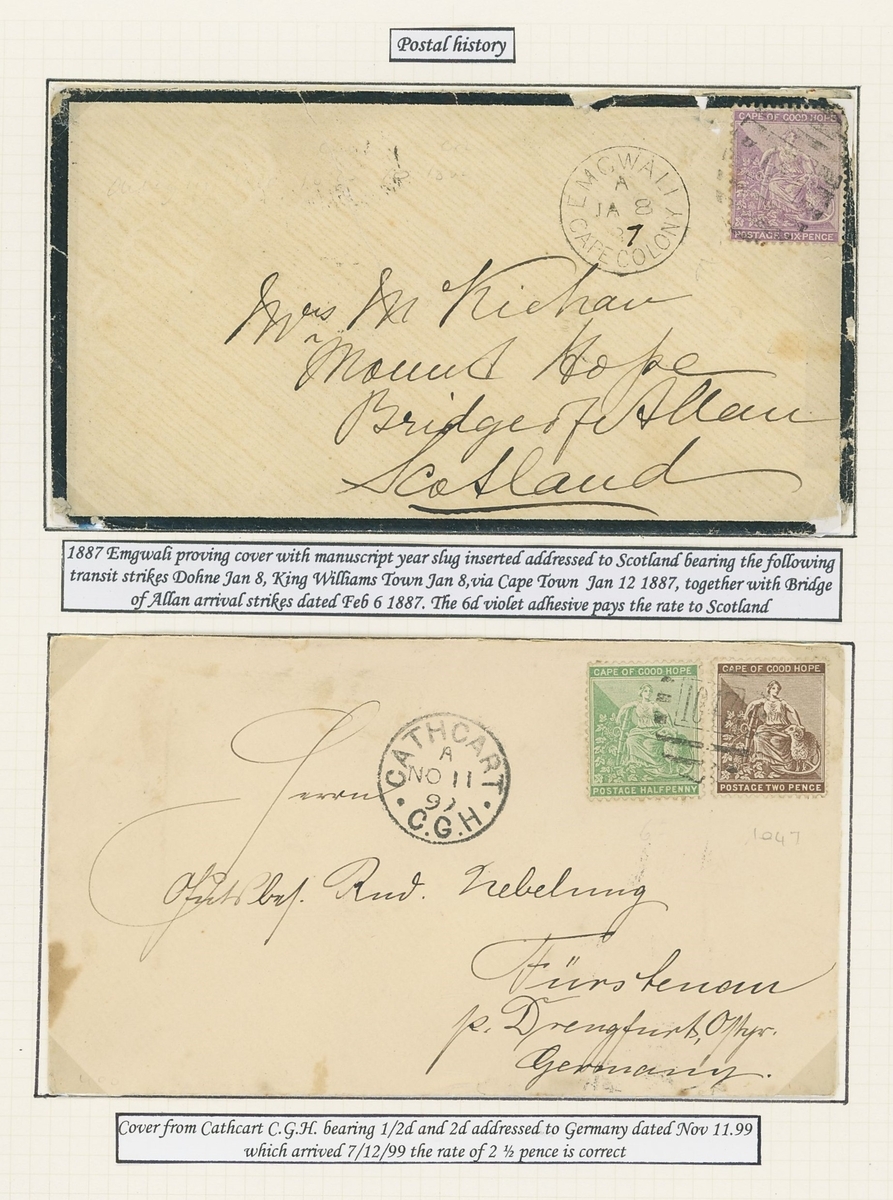 Postal history
EMGWALI
A
JA 8
87
CAPE COLONY
CAPE OF GOOD HOPE
POSTAGE SIX PENCE
Mrs McKichan
Mount Hope
Bridge of Allan
Scotland
1887 Emgwali proving cover with manuscript year slug inserted addressed to Scotland bearing the following
transit strikes Dohne Jan 8, King Williams Town Jan 8,via Cape Town Jan 12 1887, together with Bridge
of Allan arrival strikes dated Feb 6 1887. The 6d violet adhesive pays the rate to Scotland
CAPE OF GOOD HOPE
POSTAGE HALFPENNY
CAPE OF GOOD HOPE
POSTAGE TWO PENCE
CATHCART
A
NO 11
C.G.H.
1047
Herrn
Gutsbes. Rud. Nebelung
Fürstenau
p. Drengfurt, Ostpr.
Germany.
Cover from Cathcart C.G.H. bearing 1/2d and 2d addressed to Germany dated Nov 11.99
which arrived 7/12/99 the rate of 2 ½ pence is correct